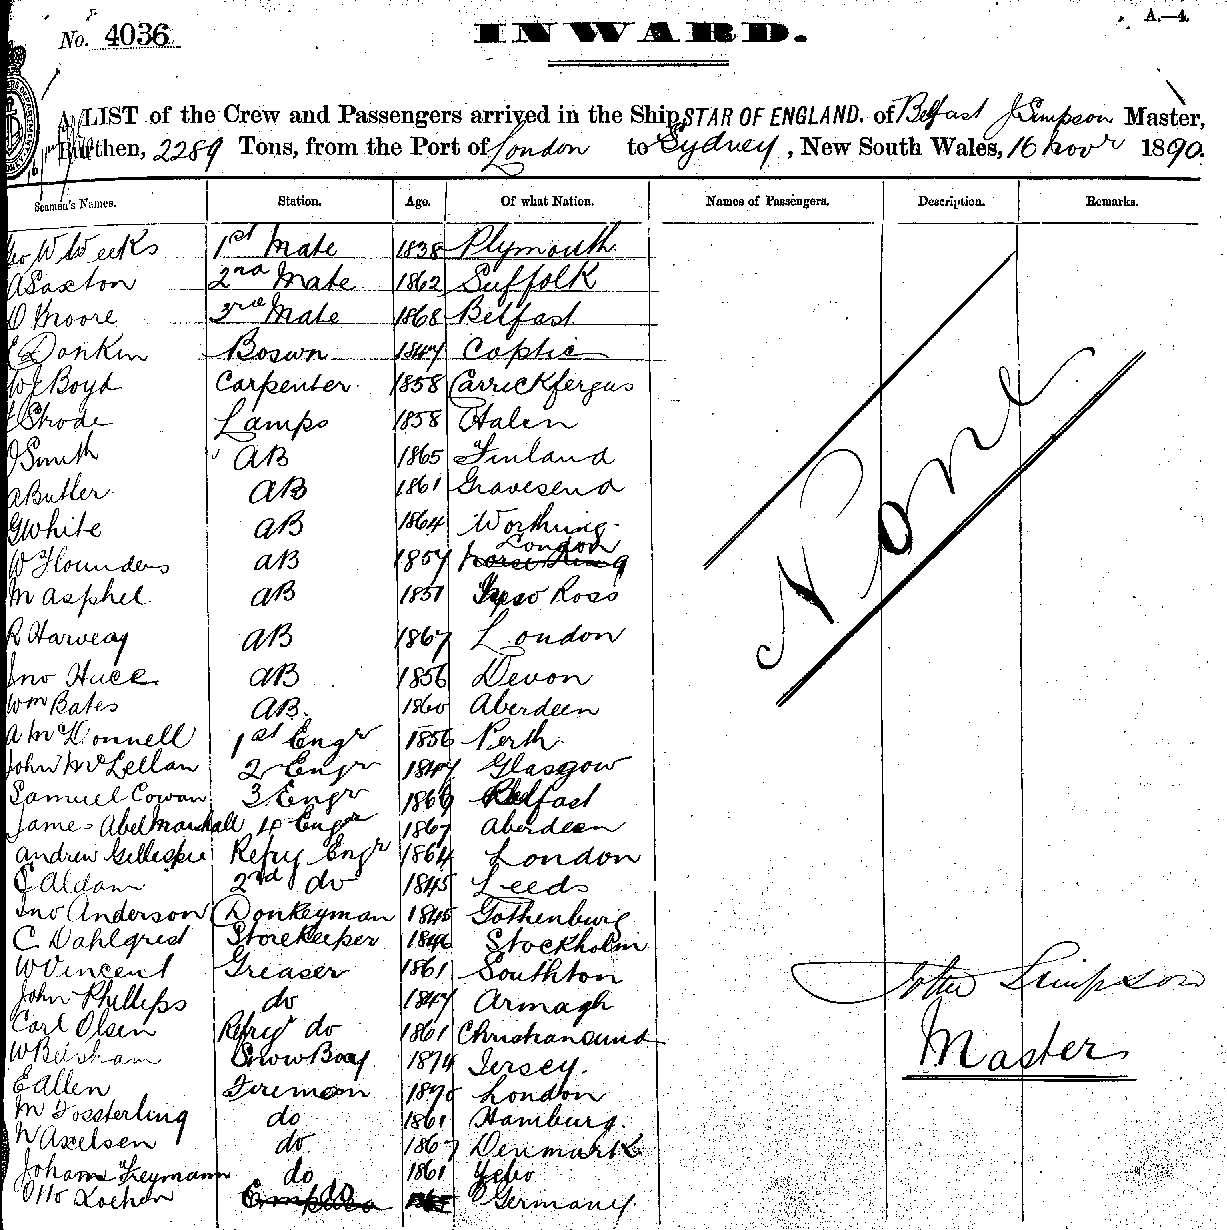 No. 4036
INWARD.
A.—4.
A LIST of the Crew and Passengers arrived in the Ship STAR OF ENGLAND. of Belfast J Simpson Master,
Burthen, 2289 Tons, from the Port of London to Sydney, New South Wales, 16 Novr 1890.
Seamen's Names. Station. Age. Of what Nation. Names of Passengers. Description. Remarks.
W Weeks 1st Mate 1838 Plymouth
A Saxton 2nd Mate 1862 Suffolk
D Moore 3rd Mate 1868 Belfast
Donkin Boswn 1847 Coptic
Boyd Carpenter 1858 Carrickfergus
Strode Lamps 1858
J Smith AB 1865 Finland
A Butler AB 1861 Gravesend
G White AB 1864 Worthing
W Flounders AB 1857 London
M Asphel AB 1851 Ross
R Harvey AB 1867 London
Jno Huce AB 1856 Devon
Wm Bates AB. 1860 Aberdeen
A McDonnell 1st Engr 1856 Perth
John McLellan 2 Engr 1847 Glasgow
Samuel Cowan 3 Engr 1866 Belfast
James Abel Marshall 4 Engr 1867 Aberdeen
Andrew Gillespie Refrg Engr 1864 London
Aldam 2nd do 1845 Leeds
Jno Anderson Donkeyman 1845 Gothenburg
C. Dahlqrist Storekeeper 1846 Stockholm
W Vincent Greaser 1861 Southton
John Phillips do 1847 Armagh
Carl Olsen Refrg do 1861 Christiansund
W Belsham Snow Boy 1874 Jersey.
E Allen Fireman 1870 London
M Fossterling do 1861 Hamburg.
N Axelsen do 1867 Denmark
Johann Freymann do 1861
Otto Kochen do Germany.
None
John Simpson
Master